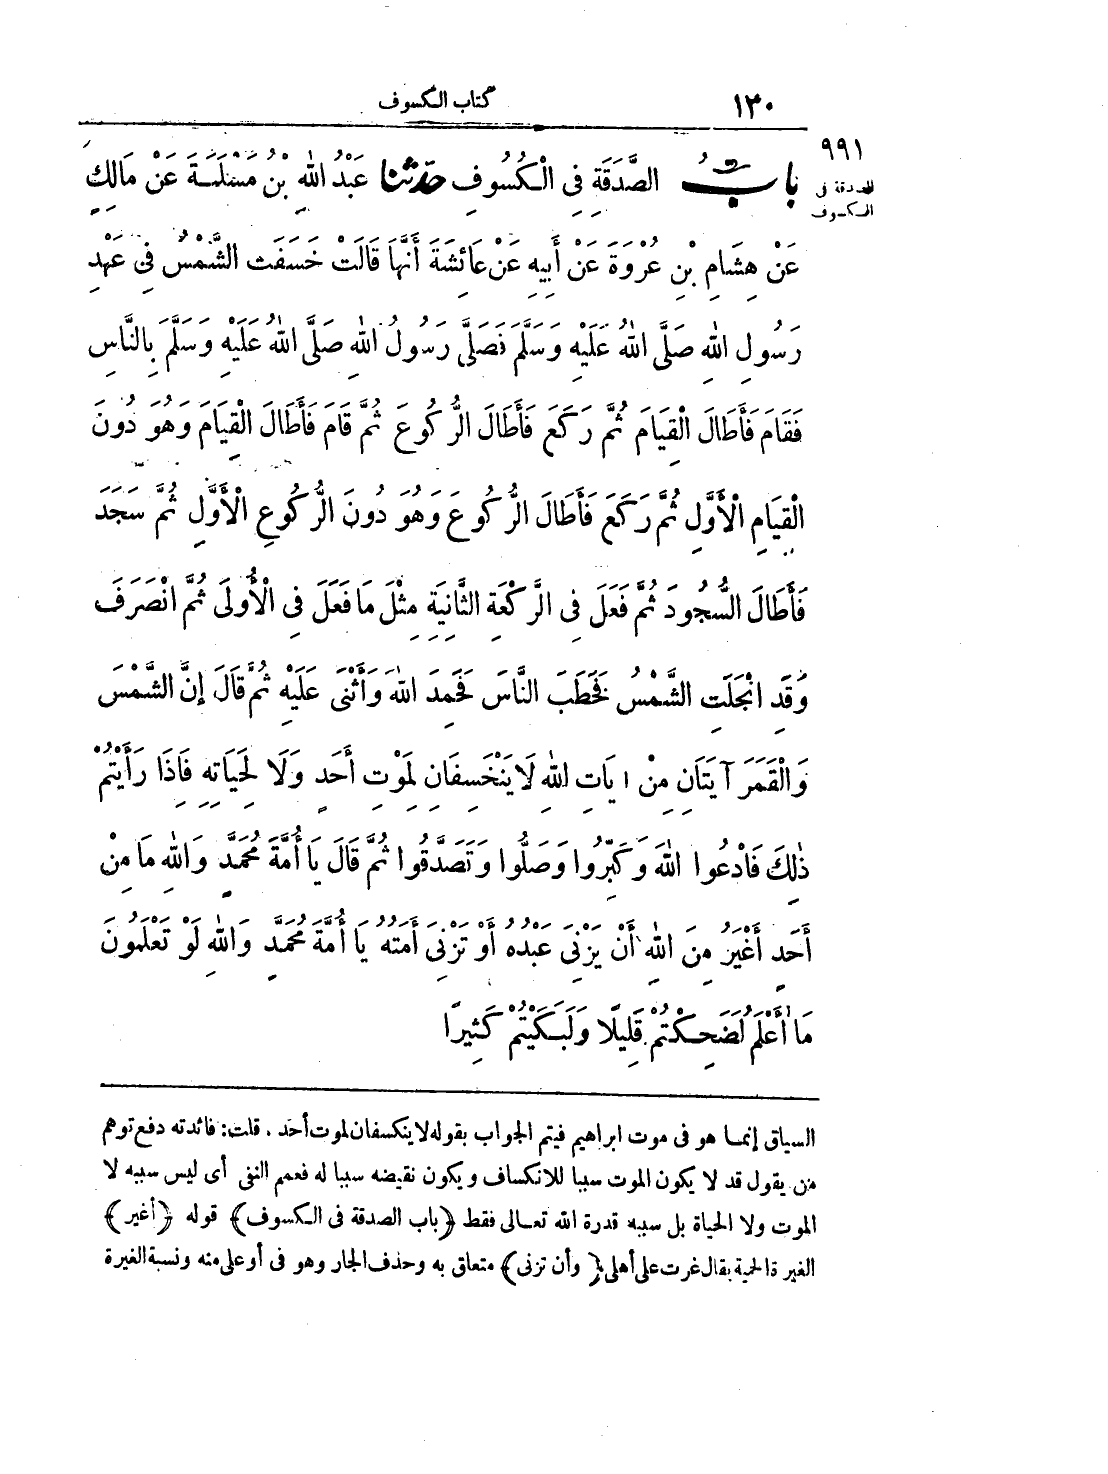 ١٣٠ كتاب الكسوف
٩٩١
الصدقة فى
الكسوف
بَابُ الصَّدَقَةِ فِى الْكُسُوفِ حَدَّثَنَا عَبْدُ اللهِ بْنُ مَسْلَمَةَ عَنْ مَالِكٍ
عَنْ هِشَامِ بْنِ عُرْوَةَ عَنْ أَبِيهِ عَنْ عَائِشَةَ أَنَّهَا قَالَتْ خَسَفَتِ الشَّمْسُ فِى عَهْدِ
رَسُولِ اللهِ صَلَّى اللهُ عَلَيْهِ وَسَلَّمَ فَصَلَّى رَسُولُ اللهِ صَلَّى اللهُ عَلَيْهِ وَسَلَّمَ بِالنَّاسِ
فَقَامَ فَأَطَالَ الْقِيَامَ ثُمَّ رَكَعَ فَأَطَالَ الرُّكُوعَ ثُمَّ قَامَ فَأَطَالَ الْقِيَامَ وَهُوَ دُونَ
الْقِيَامِ الْأَوَّلِ ثُمَّ رَكَعَ فَأَطَالَ الرُّكُوعَ وَهُوَ دُونَ الرُّكُوعِ الْأَوَّلِ ثُمَّ سَجَدَ
فَأَطَالَ السُّجُودَ ثُمَّ فَعَلَ فِى الرَّكْعَةِ الثَّانِيَةِ مِثْلَ مَا فَعَلَ فِى الْأُولَى ثُمَّ انْصَرَفَ
وَقَدِ انْجَلَتِ الشَّمْسُ فَخَطَبَ النَّاسَ فَحَمِدَ اللهَ وَأَثْنَى عَلَيْهِ ثُمَّ قَالَ إِنَّ الشَّمْسَ
وَالْقَمَرَ آيَتَانِ مِنْ ايَاتِ اللهِ لَا يَنْخَسِفَانِ لِمَوْتِ أَحَدٍ وَلَا لِحَيَاتِهِ فَإِذَا رَأَيْتُمْ
ذٰلِكَ فَادْعُوا اللهَ وَكَبِّرُوا وَصَلُّوا وَتَصَدَّقُوا ثُمَّ قَالَ يَا أُمَّةَ مُحَمَّدٍ وَاللهِ مَا مِنْ
أَحَدٍ أَغْيَرُ مِنَ اللهِ أَنْ يَزْنِىَ عَبْدُهُ أَوْ تَزْنِىَ أَمَتُهُ يَا أُمَّةَ مُحَمَّدٍ وَاللهِ لَوْ تَعْلَمُونَ
مَا أَعْلَمُ لَضَحِكْتُمْ قَلِيلًا وَلَبَكَيْتُمْ كَثِيرًا
السياق إنما هو فى موت ابراهيم فيتم الجواب بقوله لا ينكسفان لموت أحد . قلت: فائدته دفع توهم
من يقول قد لا يكون الموت سببا للانكساف ويكون نقيضه سببا له فعمم النفى أى ليس سببه لا
الموت ولا الحياة بل سببه قدرة الله تعالى فقط ﴿باب الصدقة فى الكسوف﴾ قوله ﴿أغير﴾
الغيرة الحمية يقال غرت على أهلى ﴿وأن تزنى﴾ متعلق به وحذف الجار وهو فى أو على منه ونسبة الغيرة